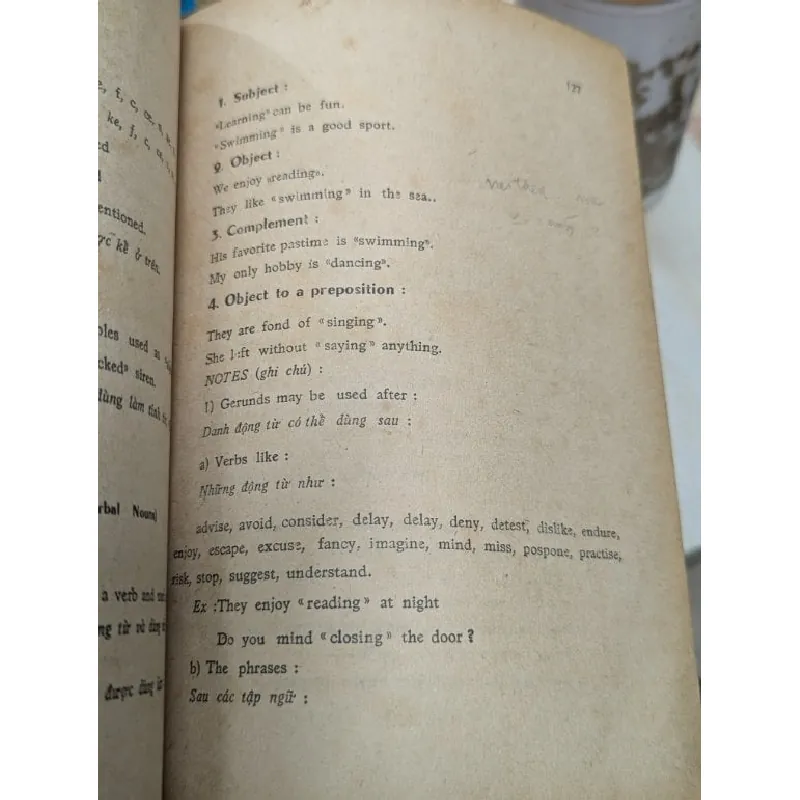 e, f, c, œ, s, k,
ke, f, c, œ, s,
ed
d
entioned.
ợc kể ở trên.
ples used as
cked» siren.
dùng làm tính
rbal Nouns)
a verb and
ng từ và dùng
được dùng
177
1. Subject :
«Learning» can be fun.
«Swimming» is a good sport.
2. Object :
We enjoy «reading».
They like «swimming» in the sea..
3. Complement :
His favorite pastime is «swimming».
My only hobby is «dancing».
4. Object to a preposition :
They are fond of «singing».
She left without «saying» anything.
NOTES (ghi chú) :
1) Gerunds may be used after :
Danh động từ có thể dùng sau :
a) Verbs like :
Những động từ như :
advise, avoid, consider, delay, delay, deny, detest, dislike, endure,
enjoy, escape, excuse, fancy, imagine, mind, miss, pospone, practise,
risk, stop, suggest, understand.
Ex :They enjoy «reading» at night
Do you mind «closing» the door ?
b) The phrases :
Sau các tập ngữ :